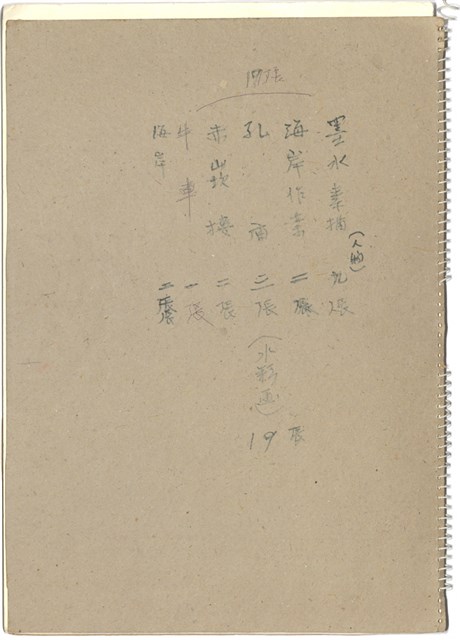 19張
墨水素描(人的)九張
海岸作業 二張
孔廟 三張
赤崁樓 二張
牛車 一張
海岸 二張
(水彩画)
19張